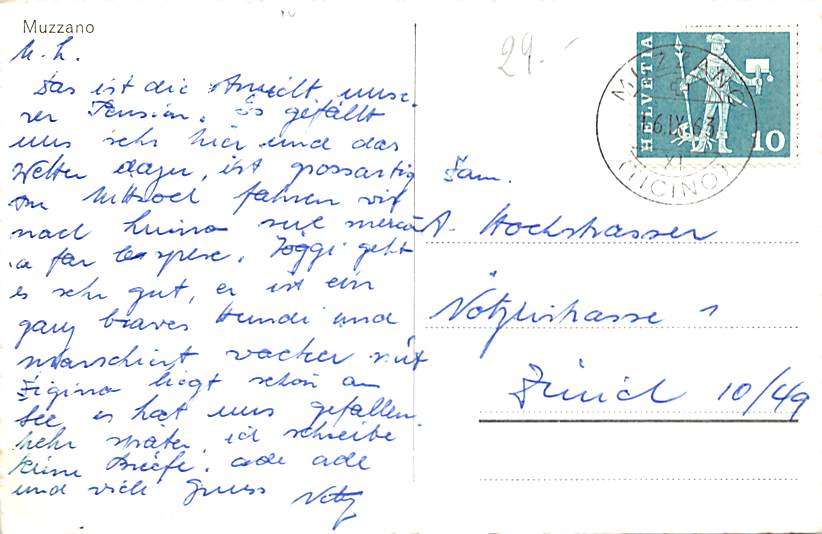 Muzzano
M. L.
Das ist die Ansicht unse-
rer Pension. Es gefällt
uns sehr hier und das
Wetter dazu, ist grossartig
Am Mittwoch fahren wir
nach Luino sul mercat
a far le spese. Joggi geht
es sehr gut, er ist ein
ganz braves Hundi und
marschiert wacker mit
Figino liegt schön am
See es hat uns gefallen.
mehr später, ich schreibe
keine Briefe. ade ade
und viele Gruss
29.-
HELVETIA
10
MUZZANO
16.IX.63
XI
(TICINO)
Fam.
A. Hochstrasser
Nötzlistrasse 1
Zürich 10/49